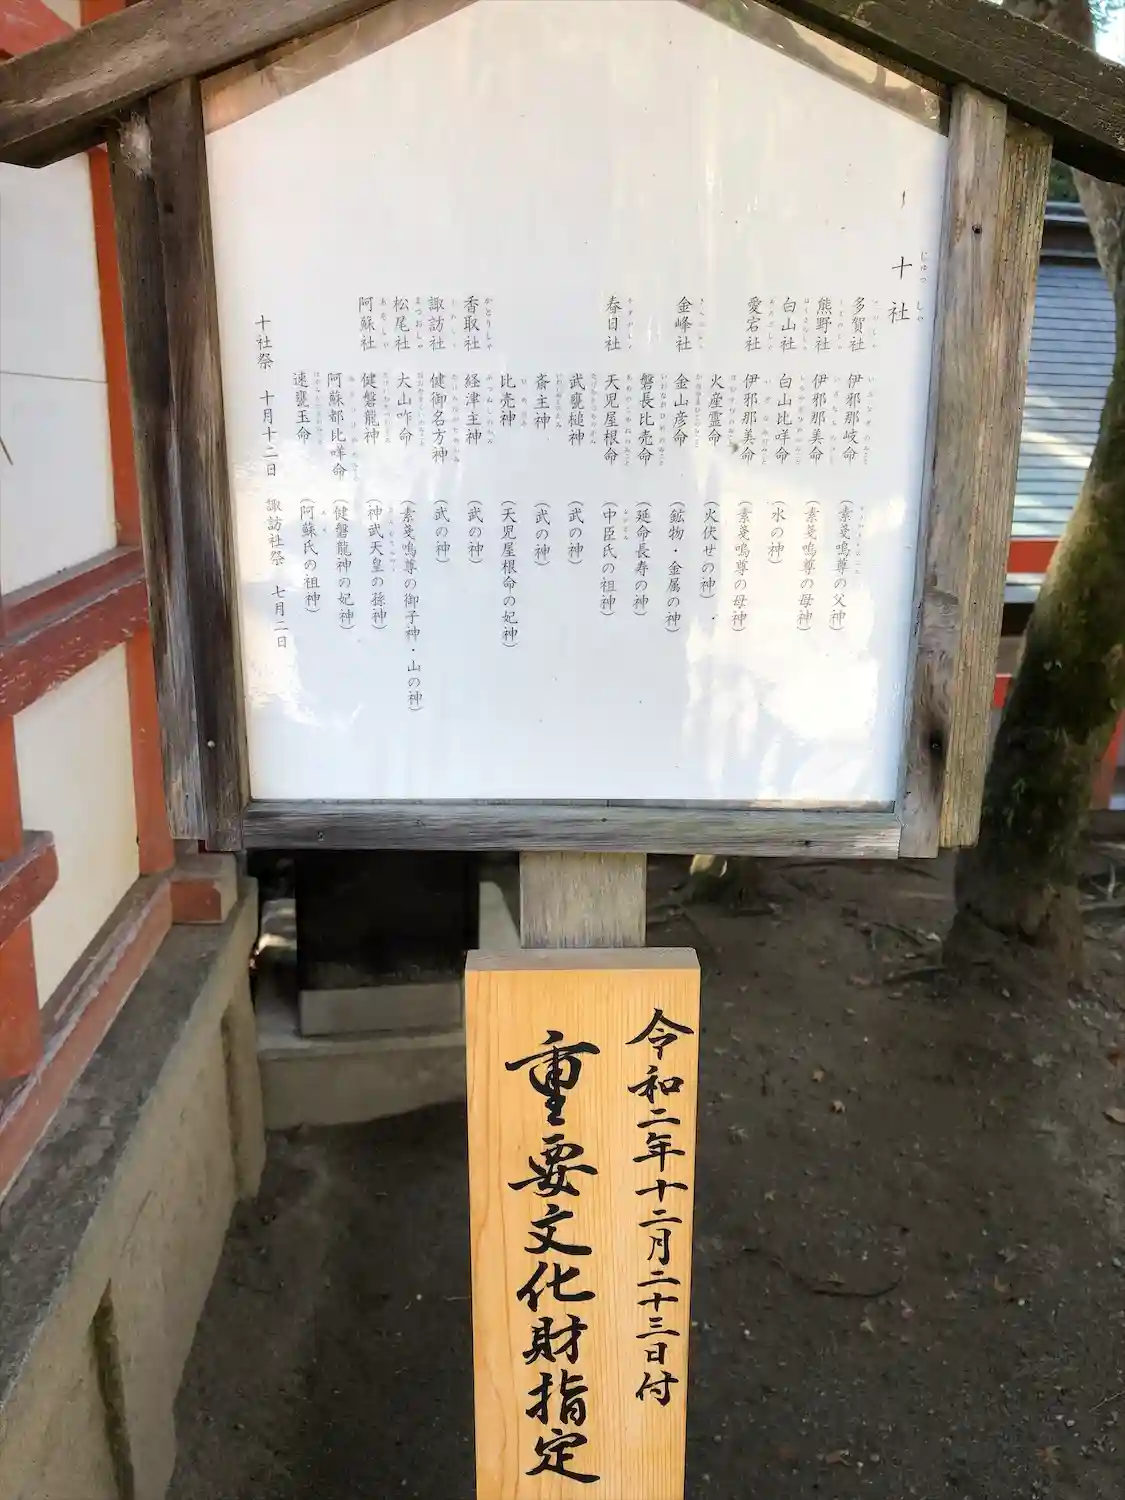 十社
じゅっしゃ
多賀社 伊邪那岐命 (素戔嗚尊の父神)
熊野社 伊邪那美命 (素戔嗚尊の母神)
白山社 白山比咩命 (水の神)
愛宕社 伊邪那美命 (素戔嗚尊の母神)
火産霊命 (火伏せの神)
金峰社 金山彦命 (鉱物・金属の神)
磐長比売命 (延命長寿の神)
春日社 天児屋根命 (中臣氏の祖神)
武甕槌神 (武の神)
斎主神 (武の神)
比売神 (天児屋根命の妃神)
香取社 経津主神 (武の神)
諏訪社 健御名方神 (武の神)
松尾社 大山咋命 (素戔嗚尊の御子神・山の神)
阿蘇社 健磐龍神 (神武天皇の孫神)
阿蘇都比咩命 (健磐龍神の妃神)
速甕玉命 (阿蘇氏の祖神)
十社祭 十月十二日 諏訪社祭 七月二日
令和二年十二月二十三日付
重要文化財指定